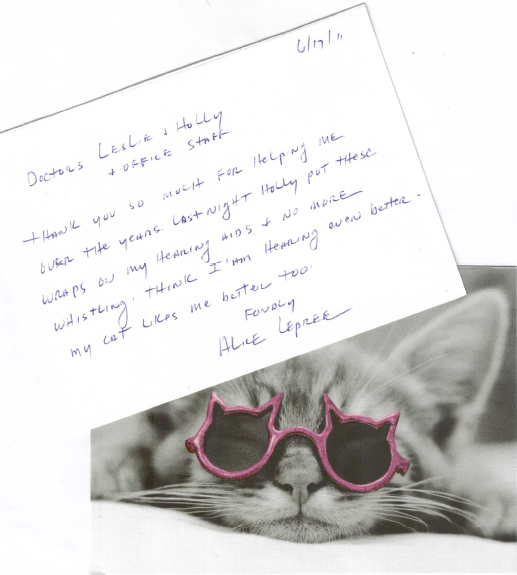 6/17/11
Doctors Leslie & Holly
& office staff
Thank you so much for helping me
over the years. Last night Holly put these
wraps on my hearing aids & no more
whistling. Think I am hearing even better.
My cat likes me better too.
Fondly
Alice Lepree